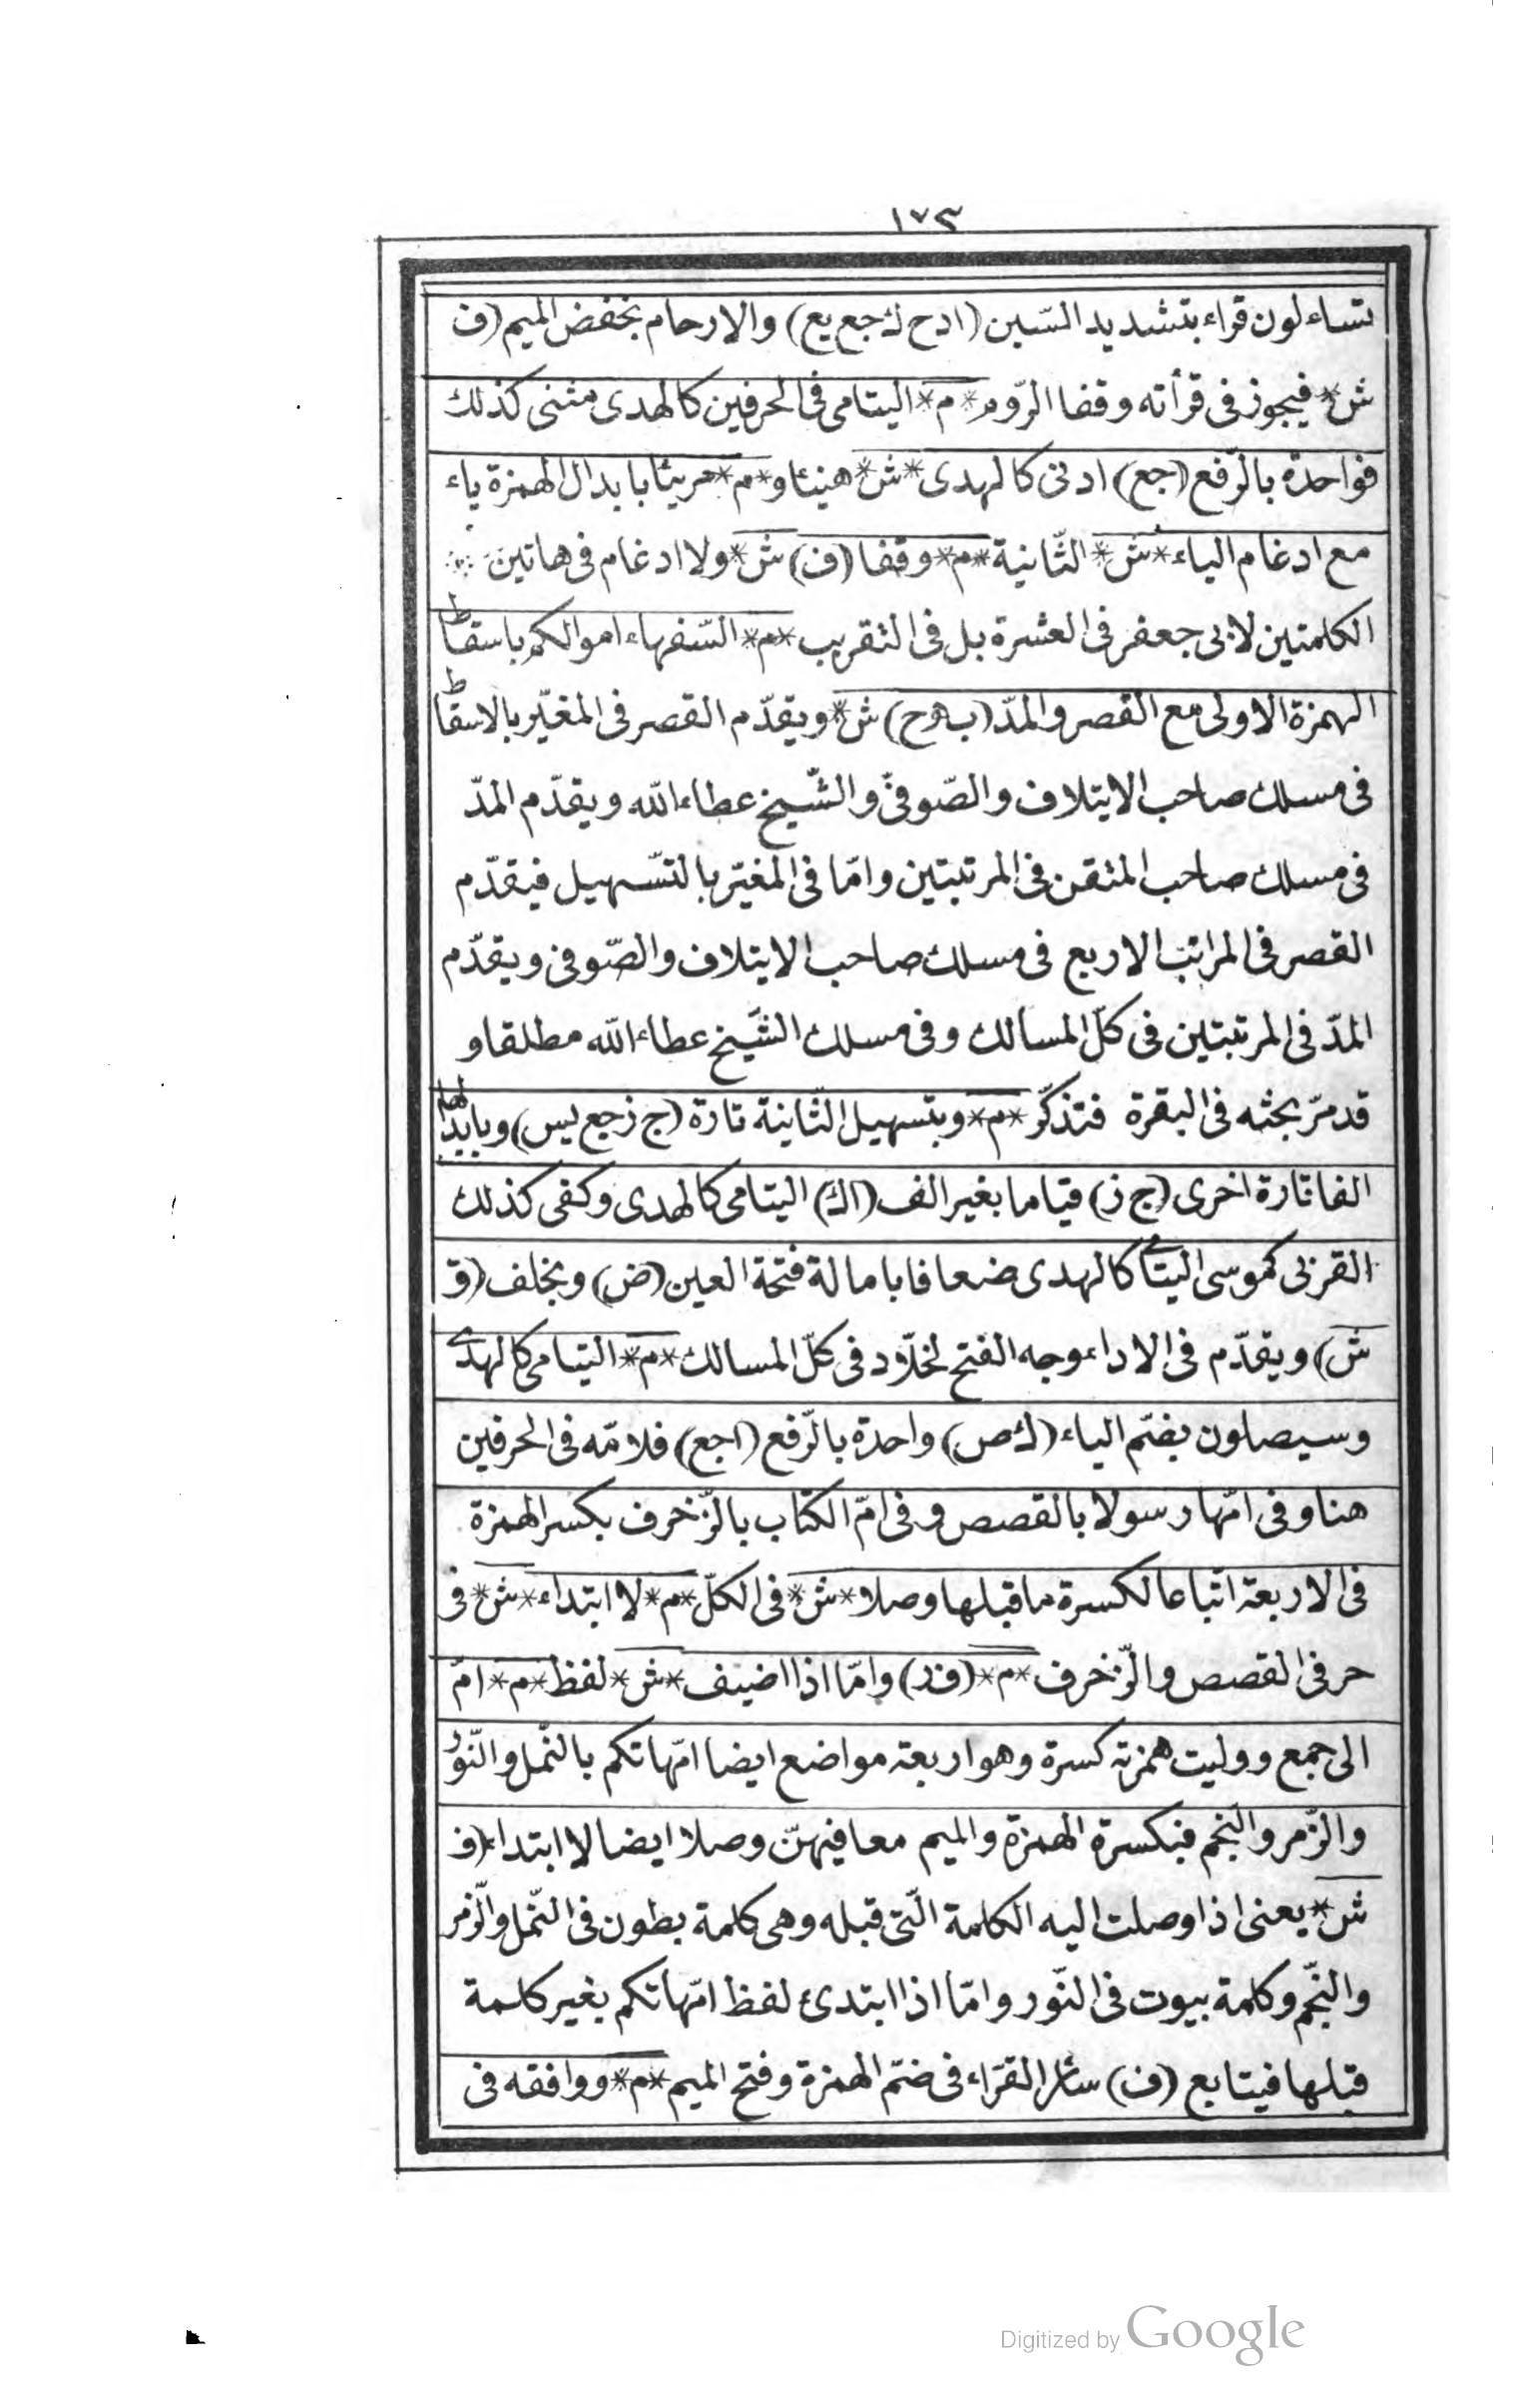 ١٧٣
تساءلون قراء بتشديد السّين (ادح ك جع يع) والارحام بخفض الميم (ف
ش* فيجوز في قرأته وقفا الرّوم *م* اليتامى في الحرفين كالهدى مثنى كذلك
فواحدة بالرّفع (جع) ادنى كالهدى *ش* هنيئا و *م* مريئا بابدال الهمزة ياء
مع ادغام الياء *ش* الثّانية *م* وقفا (ف) ش* ولا ادغام في هاتين
الكلمتين لابى جعفر في العشرة بل في التقريب *م* السّفهاء اموالكم باسقاط
الهمزة الاولى مع القصر والمدّ (ب ه ح) ش* ويقدّم القصر في المغيّر بالاسقاط
في مسلك صاحب الايتلاف والصّوفىّ والشّيخ عطاءالله ويقدّم المدّ
في مسلك صاحب المتقن في المرتبتين وامّا في المغيّر بالتّسهيل فيقدّم
القصر في المراتب الاربع في مسلك صاحب الايتلاف والصّوفى ويقدّم
المدّ في المرتبتين في كلّ المسالك وفى مسلك الشّيخ عطاءالله مطلقا و
قد مرّ بحثه في البقرة فتذكّر *م* وبتسهيل الثّانية تارة (ج ز جع يس) وبابدالها
الفا تارة اخرى (ج ز) قياما بغير الف (اك) اليتامى كالهدى وكفى كذلك
القربى كموسى اليتامى كالهدى ضعافا بامالة فتحة العين (ض) وبخلف (ق
ش) ويقدّم في الاداء وجه الفتح لخلّاد في كلّ المسالك *م* اليتامى كالهدى
وسيصلون بضّم الياء (ك ص) واحدة بالرّفع (اجع) فلامّه في الحرفين
هنا وفى امّها رسولا بالقصص وفى امّ الكتاب بالزّخرف بكسر الهمزة
في الاربعة اتّباعا لكسرة ما قبلها وصلا *ش* في الكلّ *م* لا ابتداء *ش* في
حرفى القصص والزّخرف *م* (ف ر) وامّا اذا اضيف *ش* لفظ *م* امّ
الى جمع ووليت همزته كسرة وهو اربعة مواضع ايضا امّهاتكم بالنّمل والنّور
والزّمر والنّجم فبكسرة الهمزة والميم معا فيهنّ وصلا ايضا لا ابتداء (ف
ش* يعنى اذا وصلت اليه الكلمة الّتى قبله وهى كلمة بطون في النّمل والزّمر
والنّجم وكلمة بيوت في النّور وامّا اذا ابتدئ لفظ امّهاتكم بغير كلمة
قبلها فيتابع (ف) سائر القرّاء في ضمّ الهمزة وفتح الميم *م* ووافقه في
Digitized by Google